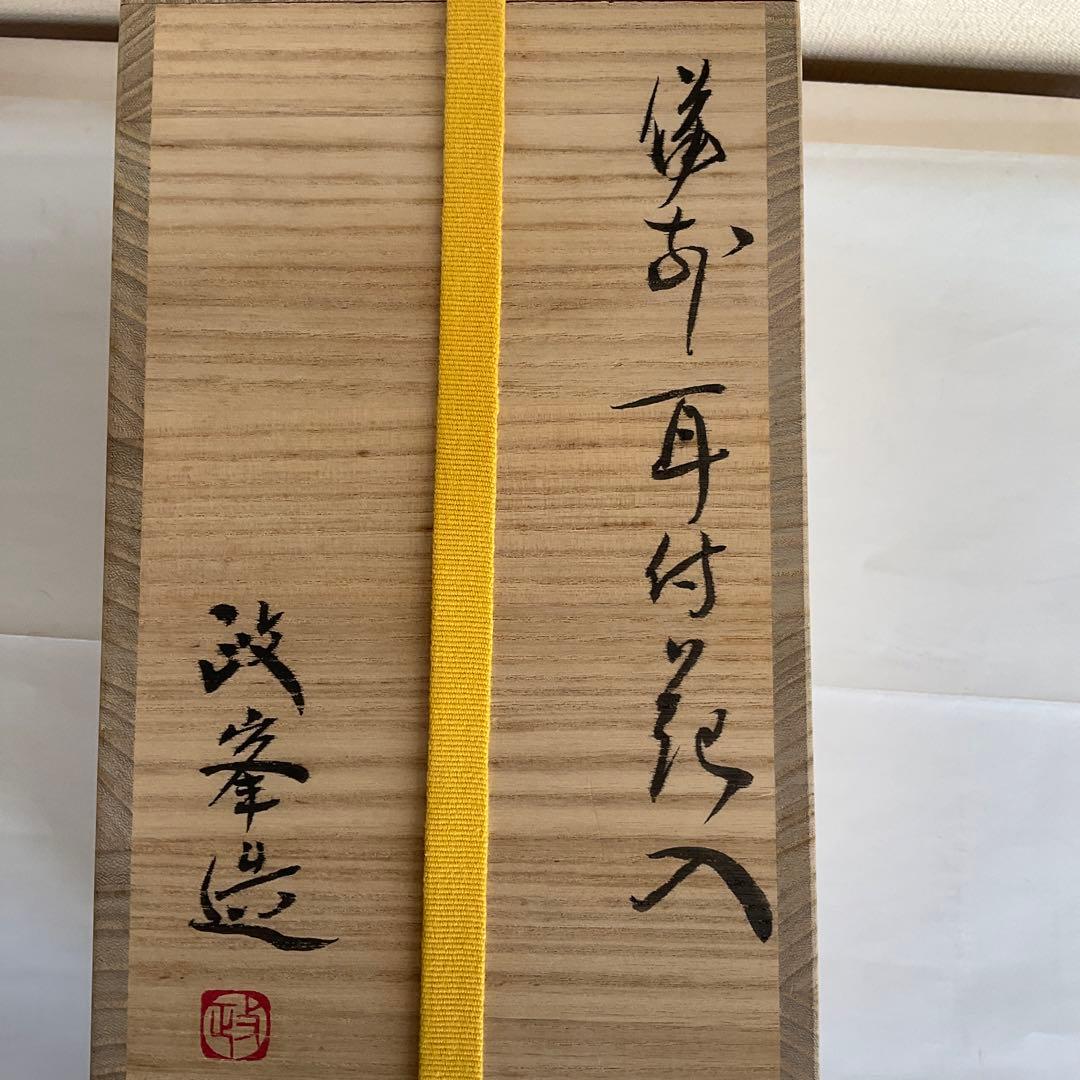 備前 耳付花入
政峯造
政